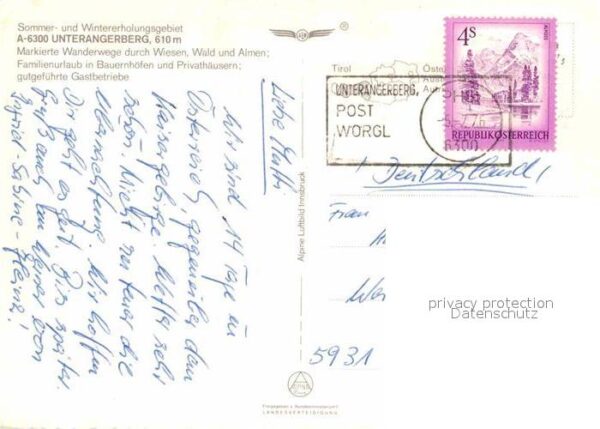 Sommer- und Wintererholungsgebiet
A-6300 UNTERANGERBERG, 610 m
Markierte Wanderwege durch Wiesen, Wald und Almen;
Familienurlaub in Bauernhöfen und Privathäusern;
gutgeführte Gastbetriebe
Liebe
Wir sind 14 Tage in
Österreich, gegenüber dem
Kaisergebirge. Wetter sehr
schön. Nicht zu teuer die
Übernachtung. Wir hoffen
Dir geht es gut. Bis später.
Gruß auch an Werner von
Ingrid-Sabine-Heinz!
Alpine Luftbild Innsbruck
Freigegeben v. Bundesministerium f.
LANDESVERTEIDIGUNG
Tirol
4S
REPUBLIK ÖSTERREICH
UNTERANGERBERG,
POST
WÖRGL
6300
Deutschland
Frau
5931
privacy protection
Datenschutz